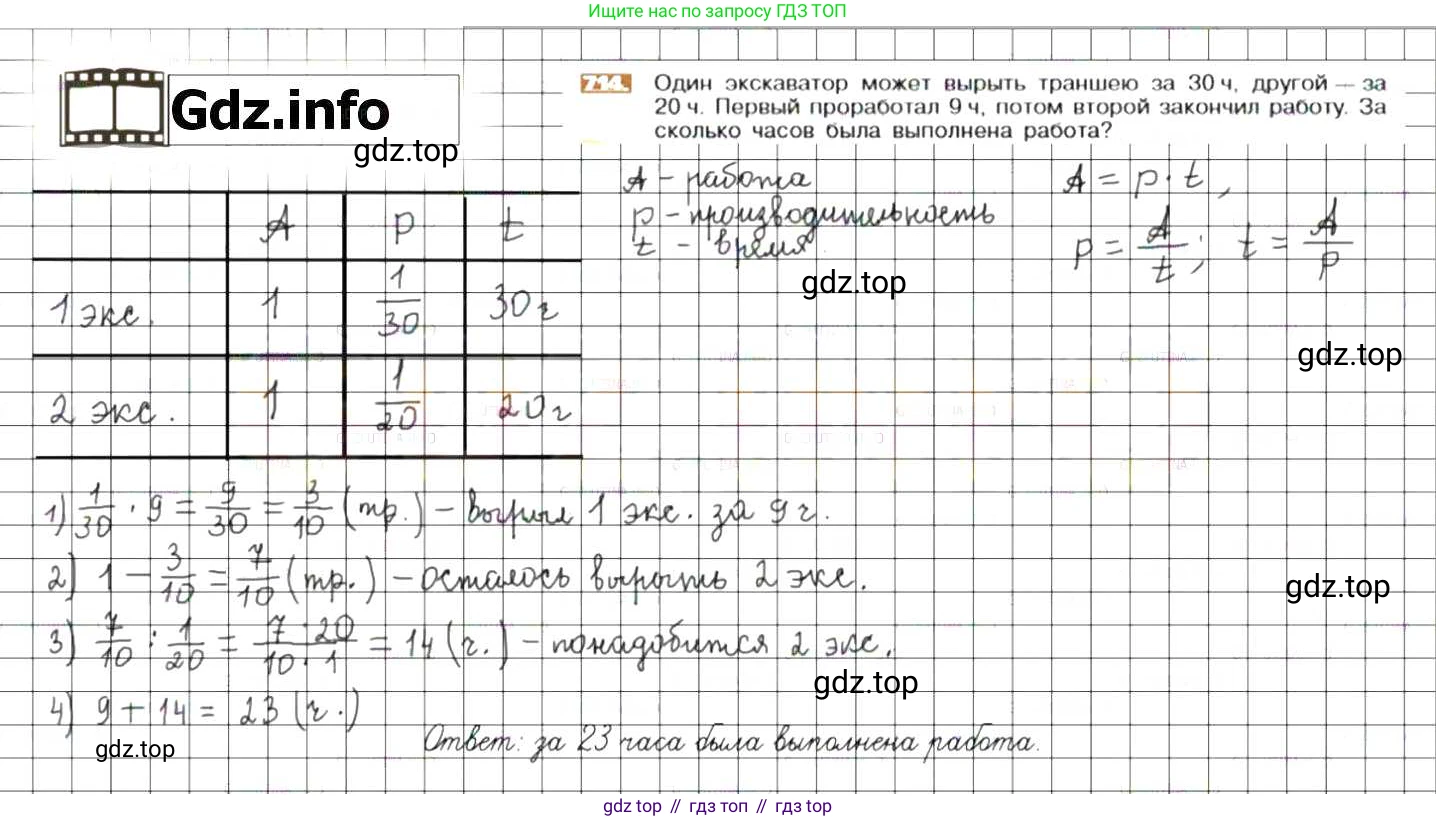 Ищите нас по запросу ГДЗ ТОП
Gdz.info
gdz.top
714. Один экскаватор может вырыть траншею за 30 ч, другой — за
20 ч. Первый проработал 9 ч, потом второй закончил работу. За
сколько часов была выполнена работа?
A – работа
p – производительность
t – время.
A = p · t,
p = A/t; t = A/p
gdz.top
gdz.top
A p t
1 экс. 1 1/30 30 ч
2 экс. 1 1/20 20 ч
1) 1/30 · 9 = 9/30 = 3/10 (тр.) – вырыл 1 экс. за 9 ч.
2) 1 – 3/10 = 7/10 (тр.) – осталось вырыть 2 экс.
gdz.top
3) 7/10 : 1/20 = 7 · 20/10 · 1 = 14 (ч.) – понадобится 2 экс.
gdz.top
4) 9 + 14 = 23 (ч.)
gdz.top
Ответ: за 23 часа была выполнена работа.
gdz top // гдз топ // гдз top